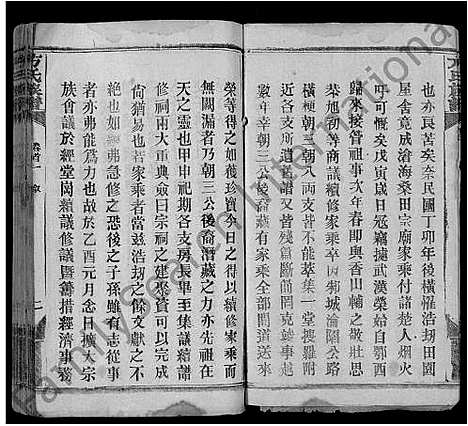 也亦良苦矣奈民國丁卯年後橫懼浩劫田園
屋舍竟成滄海桑田宗廟家乘付諸楚人烟火
吁可慨矣戊寅歲日寇竊據武漢榮始自鄂西
歸來接管祖祠事次年春即與香山輔之敬壯思
榮旭初等商議續修家乘卒因荊城淪陷公路
橫梗朝三朝八兩支皆不能萃集一堂搜羅附
近各支所遺舊譜又皆殘篇斷簡罔克竣事越
數年幸朝三公後裔藏有家乘全部間道送來
榮等得之如獲珍寶今日之得以續修家乘而
無闕漏者乃朝三公後裔潛藏之力亦先祖在
天之靈也甲申祀期各支房長畢至集議續譜
修祠兩大重典僉曰宗祠之建聚資可以完成
尚猶易也若家乘者當茲浩劫之餘文獻不
絕也如縷弗急修之恐後之子孫雖有志從事
者亦弗能為力也故於乙酉元月念日擴大宗
族會議於經堂岡續議修譜暨籌措經濟事務
方氏族譜
卷首一